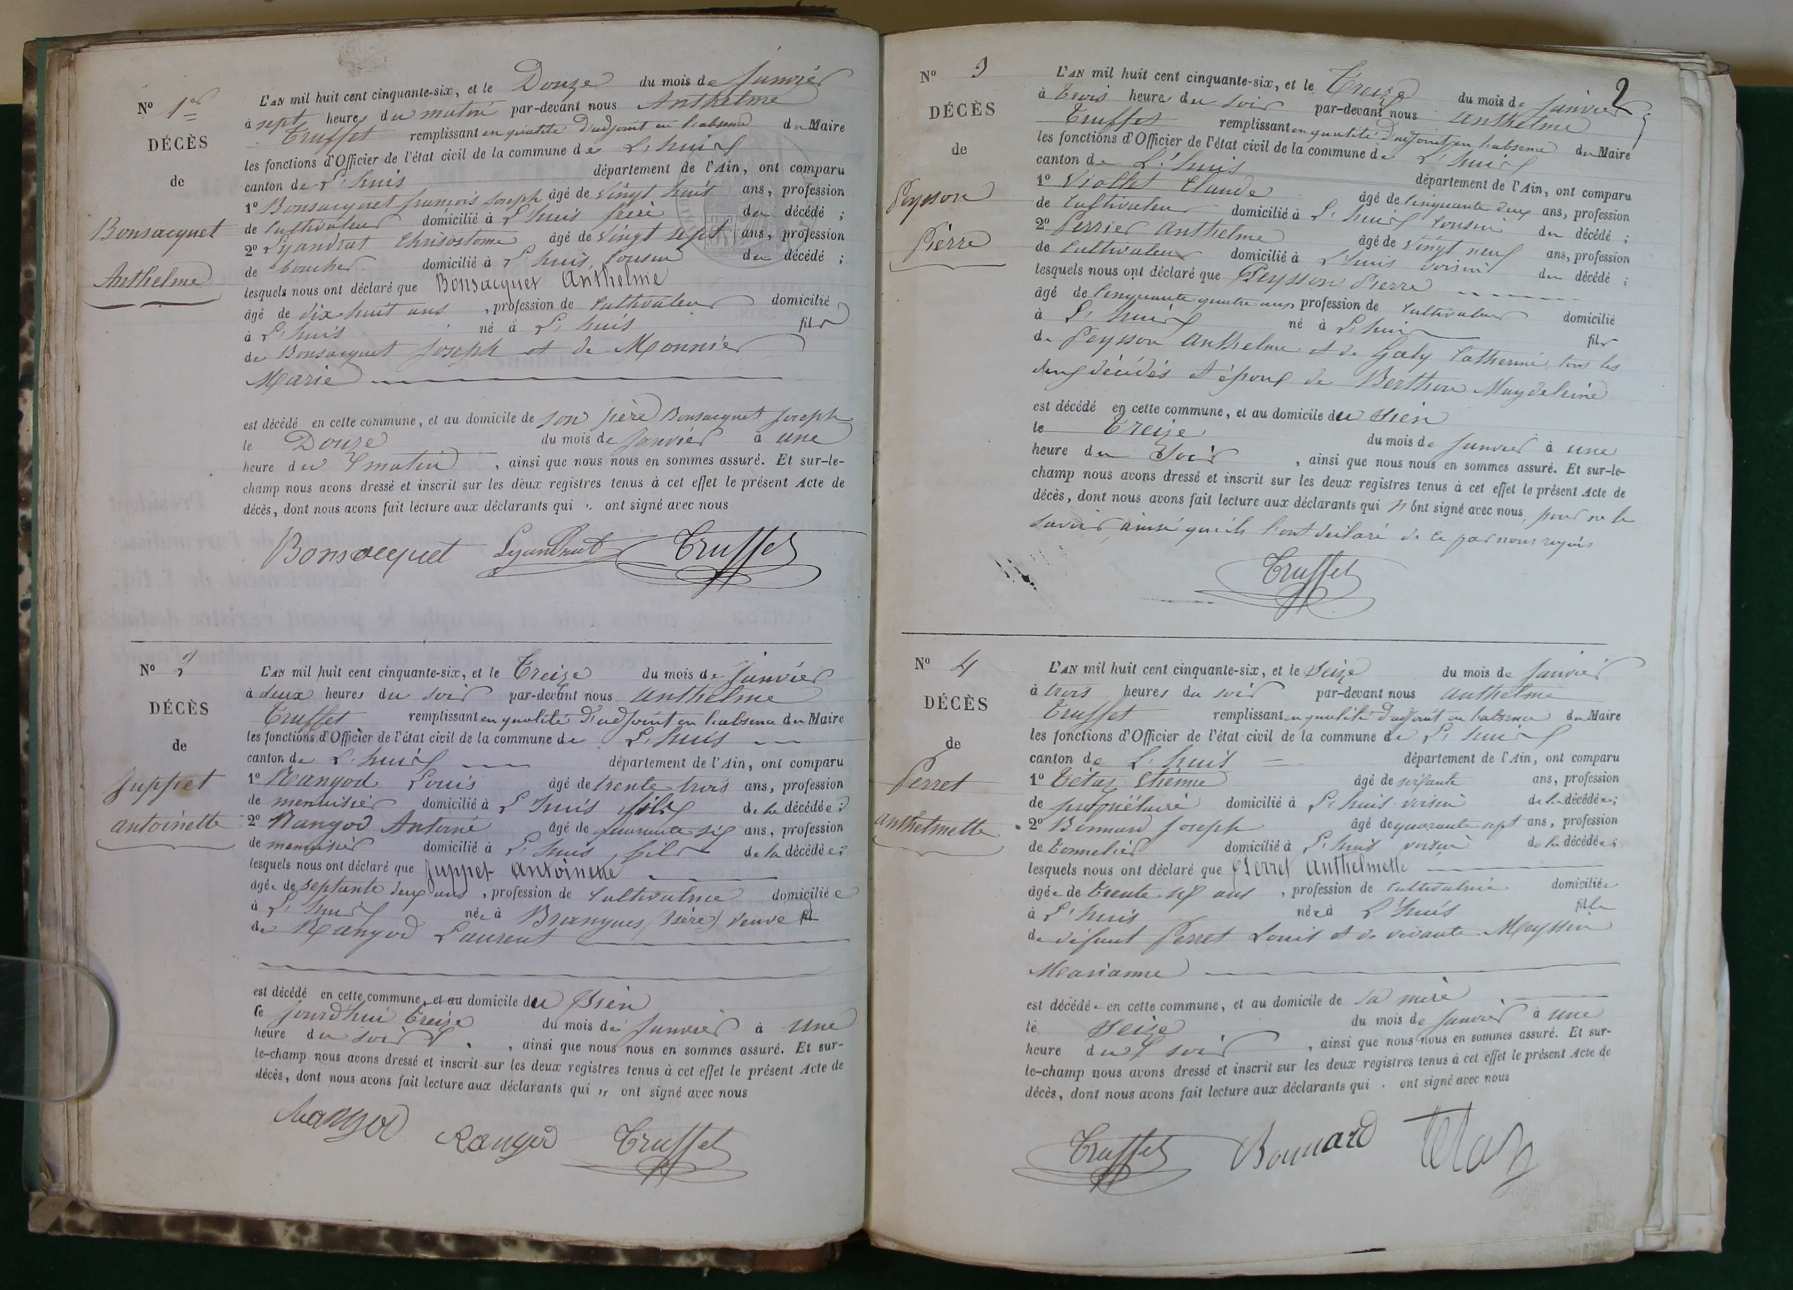 N° 1er
DÉCÈS
de
Bonsacquet
Anthelme
L'AN mil huit cent cinquante-six, et le Douze du mois de Janvier
à sept heure du matin par-devant nous Anthelme
Truffet remplissant en qualité d'adjoint en l'absence du Maire
les fonctions d'Officier de l'état civil de la commune de L'huis
canton de L'huis département de l'Ain, ont comparu
1° Bonsacquet françois Joseph âgé de vingt huit ans, profession
de cultivateur domicilié à L'huis frère du décédé ;
2° Lyandrat Chrisostome âgé de vingt sept ans, profession
de boucher domicilié à L'huis cousin du décédé ;
lesquels nous ont déclaré que Bonsacquet Anthelme
âgé de dix huit ans , profession de cultivateur domicilié
à L'huis né à L'huis fils
de Bonsacquet Joseph et de Monnier
Marie
est décédé en cette commune, et au domicile de son père Bonsacquet Joseph
le Douze du mois de Janvier à une
heure du matin , ainsi que nous nous en sommes assuré. Et sur-le-
champ nous avons dressé et inscrit sur les deux registres tenus à cet effet le présent Acte de
décès, dont nous avons fait lecture aux déclarants qui ont signé avec nous
Bonsacquet Lyandrat Truffet
N° 2
DÉCÈS
de
Juppet
antoinette
L'AN mil huit cent cinquante-six, et le Treize du mois de Janvier
à deux heures du soir par-devant nous anthelme
Truffet remplissant en qualité d'adjoint en l'absence du Maire
les fonctions d'Officier de l'état civil de la commune de L'huis
canton de L'huis département de l'Ain, ont comparu
1° Rangod Louis âgé de trente trois ans, profession
de menuisier domicilié à L'huis fils de la décédée ;
2° Rangod Antoine âgé de quarante six ans, profession
de menuisier domicilié à L'huis fils de la décédée ;
lesquels nous ont déclaré que Juppet antoinette
âgée de septante deux ans , profession de cultivatrice domiciliée
à L'huis née à Brangues (Isère) veuve
de Rangod Laurent
est décédé en cette commune, et au domicile du sien
le jourd'hui treize du mois de Janvier à une
heure du soir , ainsi que nous nous en sommes assuré. Et sur-
le-champ nous avons dressé et inscrit sur les deux registres tenus à cet effet le présent Acte de
décès, dont nous avons fait lecture aux déclarants qui ont signé avec nous
Rangod Rangod Truffet
2
N° 3
DÉCÈS
de
Peysson
Pierre
L'AN mil huit cent cinquante-six, et le Treize du mois de Janvier
à trois heure du soir par-devant nous anthelme
Truffet remplissant en qualité d'adjoint en l'absence du Maire
les fonctions d'Officier de l'état civil de la commune de L'huis
canton de L'huis département de l'Ain, ont comparu
1° Viollet Claude âgé de cinquante deux ans, profession
de cultivateur domicilié à L'huis cousin du décédé ;
2° Perrier Anthelme âgé de vingt neuf ans, profession
de cultivateur domicilié à L'huis voisin du décédé ;
lesquels nous ont déclaré que Peysson Pierre
âgé de cinquante quatre ans, profession de cultivateur domicilié
à L'huis né à L'huis fils
de Peysson anthelme et de Galy Catherine, tous les
deux décédés et époux de Berthon Magdeleine
est décédé en cette commune, et au domicile du sien
le treize du mois de Janvier à une
heure du soir , ainsi que nous nous en sommes assuré. Et sur-le-
champ nous avons dressé et inscrit sur les deux registres tenus à cet effet le présent Acte de
décès, dont nous avons fait lecture aux déclarants qui n'ont signé avec nous pour ne le
savoir, ainsi qu'ils l'ont déclaré de ce par nous requis
Truffet
N° 4
DÉCÈS
de
Perret
anthelmette
L'AN mil huit cent cinquante-six, et le Seize du mois de Janvier
à trois heures du soir par-devant nous anthelme
Truffet remplissant en qualité d'adjoint en l'absence du Maire
les fonctions d'Officier de l'état civil de la commune de L'huis
canton de L'huis département de l'Ain, ont comparu
1° Tétaz Etienne âgé de soixante ans, profession
de propriétaire domicilié à L'huis voisin de la décédée ;
2° Bonnard Joseph âgé de quarante sept ans, profession
de tonnelier domicilié à L'huis voisin de la décédée ;
lesquels nous ont déclaré que Perret anthelmette
âgée de trente six ans , profession de cultivatrice domiciliée
à L'huis née à L'huis fille
de défunt Perret Louis et de vivante Meyssin
Marianne
est décédée en cette commune, et au domicile de sa mère
le seize du mois de Janvier à une
heure du soir , ainsi que nous nous en sommes assuré. Et sur-
le-champ nous avons dressé et inscrit sur les deux registres tenus à cet effet le présent Acte de
décès, dont nous avons fait lecture aux déclarants qui ont signé avec nous
Truffet Bonnard Tetaz